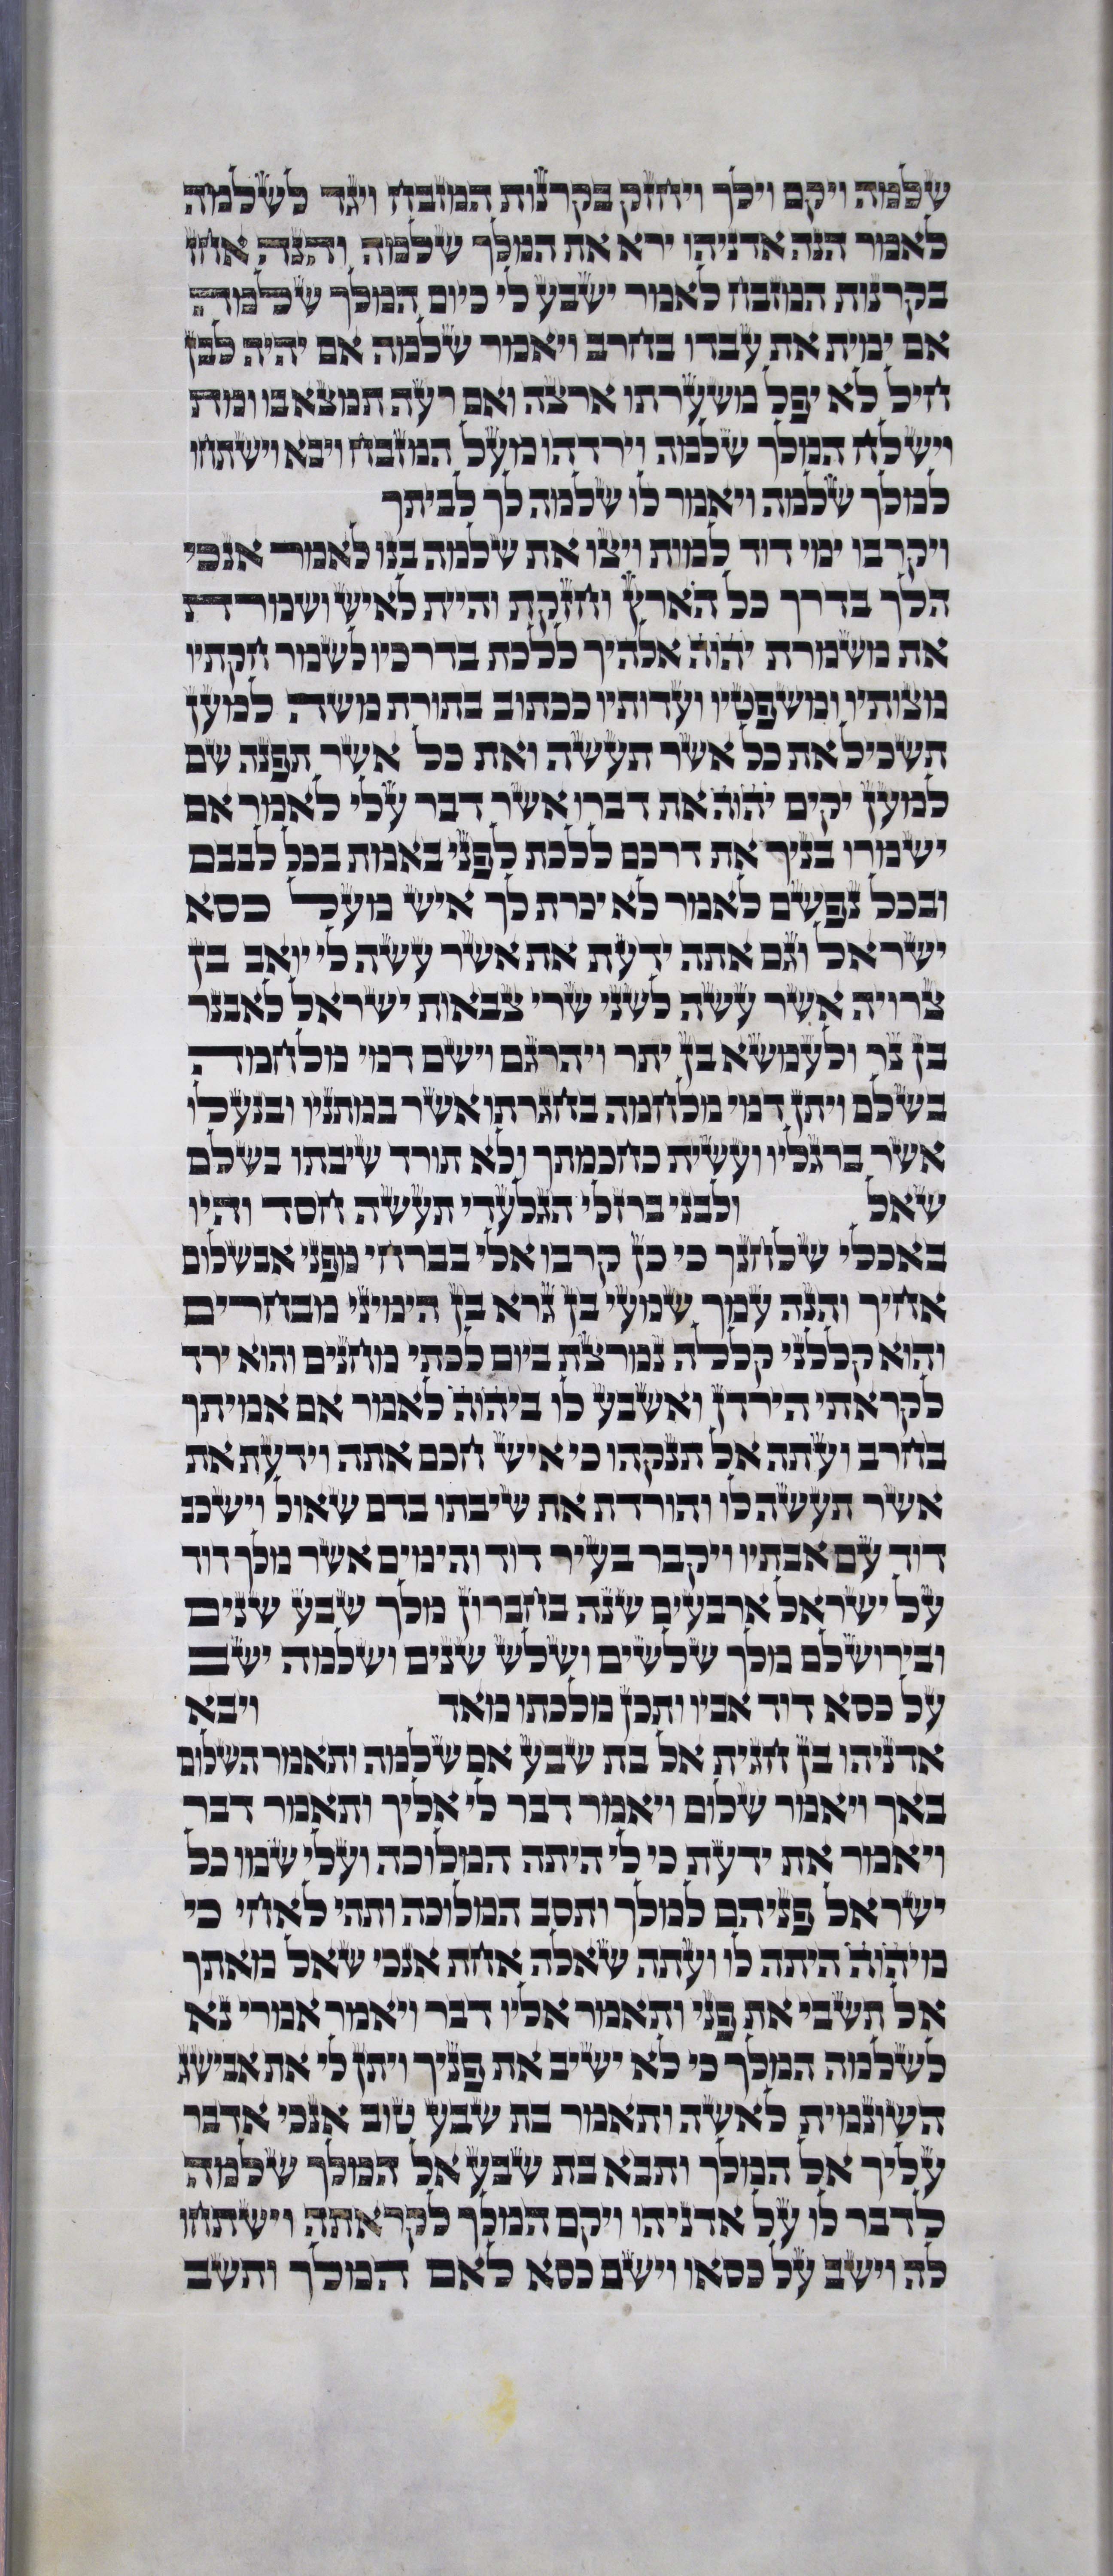 שלמה ויקם וילך ויחזק בקרנות המזבח ויגד לשלמה
לאמר הנה אדניהו ירא את המלך שלמה והנה אחז
בקרנות המזבח לאמר ישבע לי כיום המלך שלמה
אם ימית את עבדו בחרב ויאמר שלמה אם יהיה לבן
חיל לא יפל משערתו ארצה ואם רעה תמצא בו ומת
וישלח המלך שלמה וירדהו מעל המזבח ויבא וישתחו
למלך שלמה ויאמר לו שלמה לך לביתך
ויקרבו ימי דוד למות ויצו את שלמה בנו לאמר אנכי
הלך בדרך כל הארץ וחזקת והיית לאיש ושמרת
את משמרת יהוה אלהיך ללכת בדרכיו לשמר חקתיו
מצותיו ומשפטיו ועדותיו ככתוב בתורת משה למען
תשכיל את כל אשר תעשה ואת כל אשר תפנה שם
למען יקים יהוה את דברו אשר דבר עלי לאמר אם
ישמרו בניך את דרכם ללכת לפני באמת בכל לבבם
ובכל נפשם לאמר לא יכרת לך איש מעל כסא
ישראל וגם אתה ידעת את אשר עשה לי יואב בן
צרויה אשר עשה לשני שרי צבאות ישראל לאבנר
בן נר ולעמשא בן יתר ויהרגם וישם דמי מלחמה
בשלם ויתן דמי מלחמה בחגרתו אשר במתניו ובנעלו
אשר ברגליו ועשית כחכמתך ולא תורד שיבתו בשלם
שאל ולבני ברזלי הגלעדי תעשה חסד והיו
באכלי שלחנך כי כן קרבו אלי בברחי מפני אבשלום
אחיך והנה עמך שמעי בן גרא בן הימיני מבחרים
והוא קללני קללה נמרצת ביום לכתי מחנים והוא ירד
לקראתי הירדן ואשבע לו ביהוה לאמר אם אמיתך
בחרב ועתה אל תנקהו כי איש חכם אתה וידעת את
אשר תעשה לו והורדת את שיבתו בדם שאול וישכב
דוד עם אבתיו ויקבר בעיר דוד והימים אשר מלך דוד
על ישראל ארבעים שנה בחברון מלך שבע שנים
ובירושלם מלך שלשים ושלש שנים ושלמה ישב
על כסא דוד אביו ותכן מלכתו מאד ויבא
אדניהו בן חגית אל בת שבע אם שלמה ותאמר השלום
באך ויאמר שלום ויאמר דבר לי אליך ותאמר דבר
ויאמר את ידעת כי לי היתה המלוכה ועלי שמו כל
ישראל פניהם למלך ותסב המלוכה ותהי לאחי כי
מיהוה היתה לו ועתה שאלה אחת אנכי שאל מאתך
אל תשבי את פני ותאמר אליו דבר ויאמר אמרי נא
לשלמה המלך כי לא ישיב את פניך ויתן לי את אבישג
השונמית לאשה ותאמר בת שבע טוב אנכי אדבר
עליך אל המלך ותבא בת שבע אל המלך שלמה
לדבר לו על אדניהו ויקם המלך לקראתה וישתחו
לה וישב על כסאו וישם כסא לאם המלך ותשב